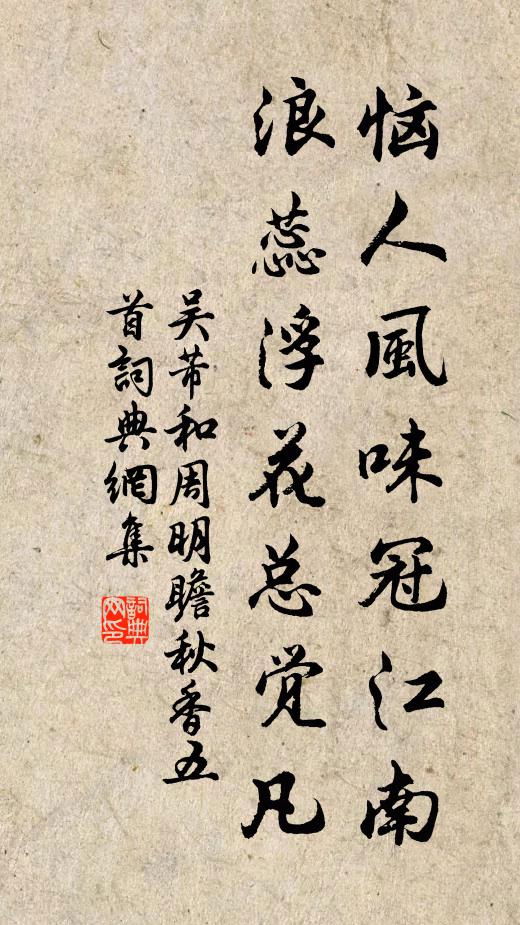 恼人風味冠江南
浪蕊浮花总觉凡
吴芾和周明瞻秋香五
首詞典網集
詞典
网印